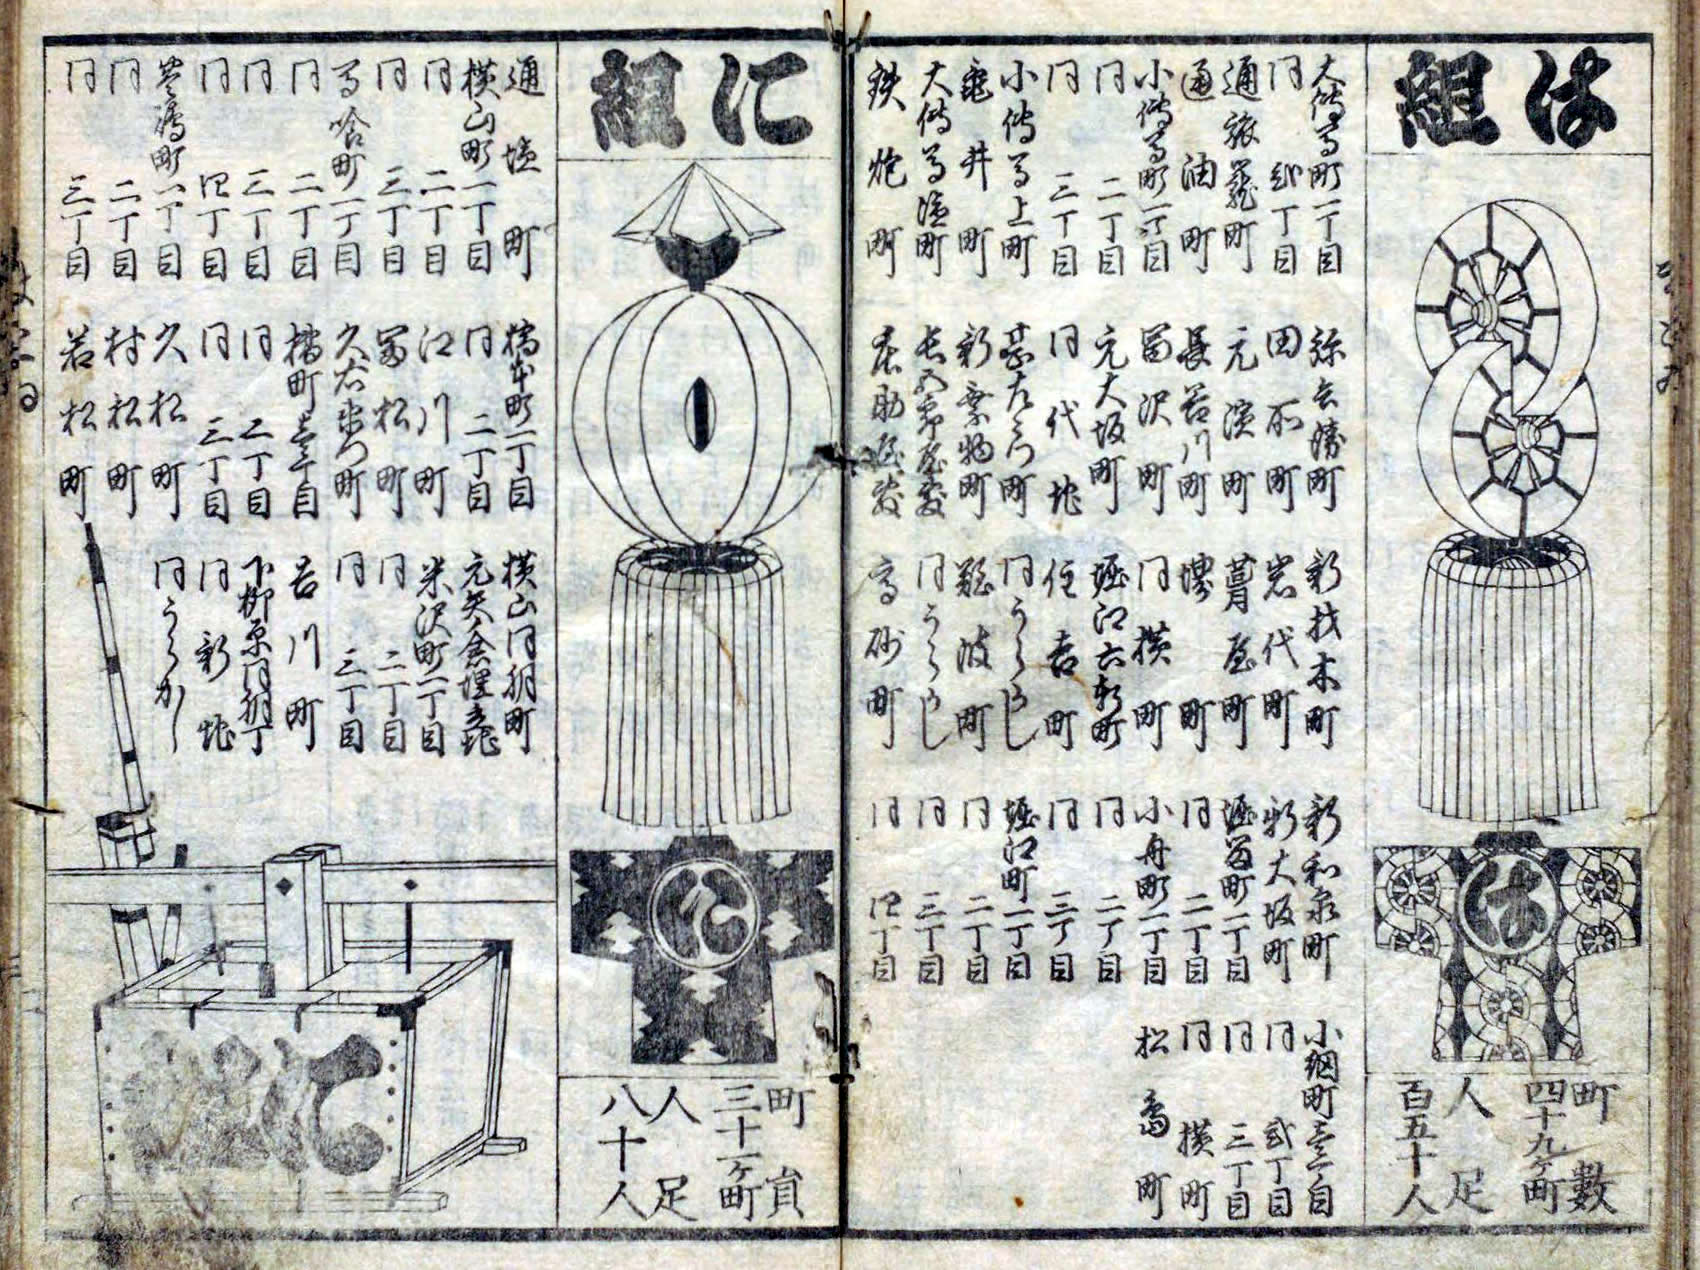 は組
町數
四十九ヶ町
人足
百五十人
大傳馬町一丁目
同 弐丁目
通旅籠町
通油町
小傳馬町一丁目
同 二丁目
同 三丁目
小傳馬上町
龜井町
大傳馬塩町
鉄炮町
弥兵衛町
田所町
元濱町
長谷川町
冨沢町
元大坂町
同代地
甚左衛門町
新乗物町
長五郎屋敷
庄助屋敷
新材木町
岩代町
葺屋町
堺町
同横町
堀江六軒町
住吉町
同うらかし
難波町
同うらかし
高砂町
新和泉町
新大坂町
堀留町一丁目
同 二丁目
小舟町一丁目
同 二丁目
同 三丁目
堀江町一丁目
同 二丁目
同 三丁目
同 四丁目
小網町壱丁目
同 弐丁目
同 三丁目
同 横町
松島町
は
に組
町員
三十一ヶ町
人足
八十人
に
通塩町
横山町一丁目
同 二丁目
同 三丁目
馬喰町一丁目
同 二丁目
同 三丁目
同 四丁目
豊嶋町一丁目
同 二丁目
同 三丁目
橋本町一丁目
同 二丁目
江川町
冨松町
久右衛門町
橘町壱丁目
同 二丁目
同 三丁目
久松町
村松町
若松町
横山同朋町
元矢ノ倉埋立地
米沢町一丁目
同 二丁目
同 三丁目
吉川町
下柳原同朋丁
同 新地
同うらかし
に組